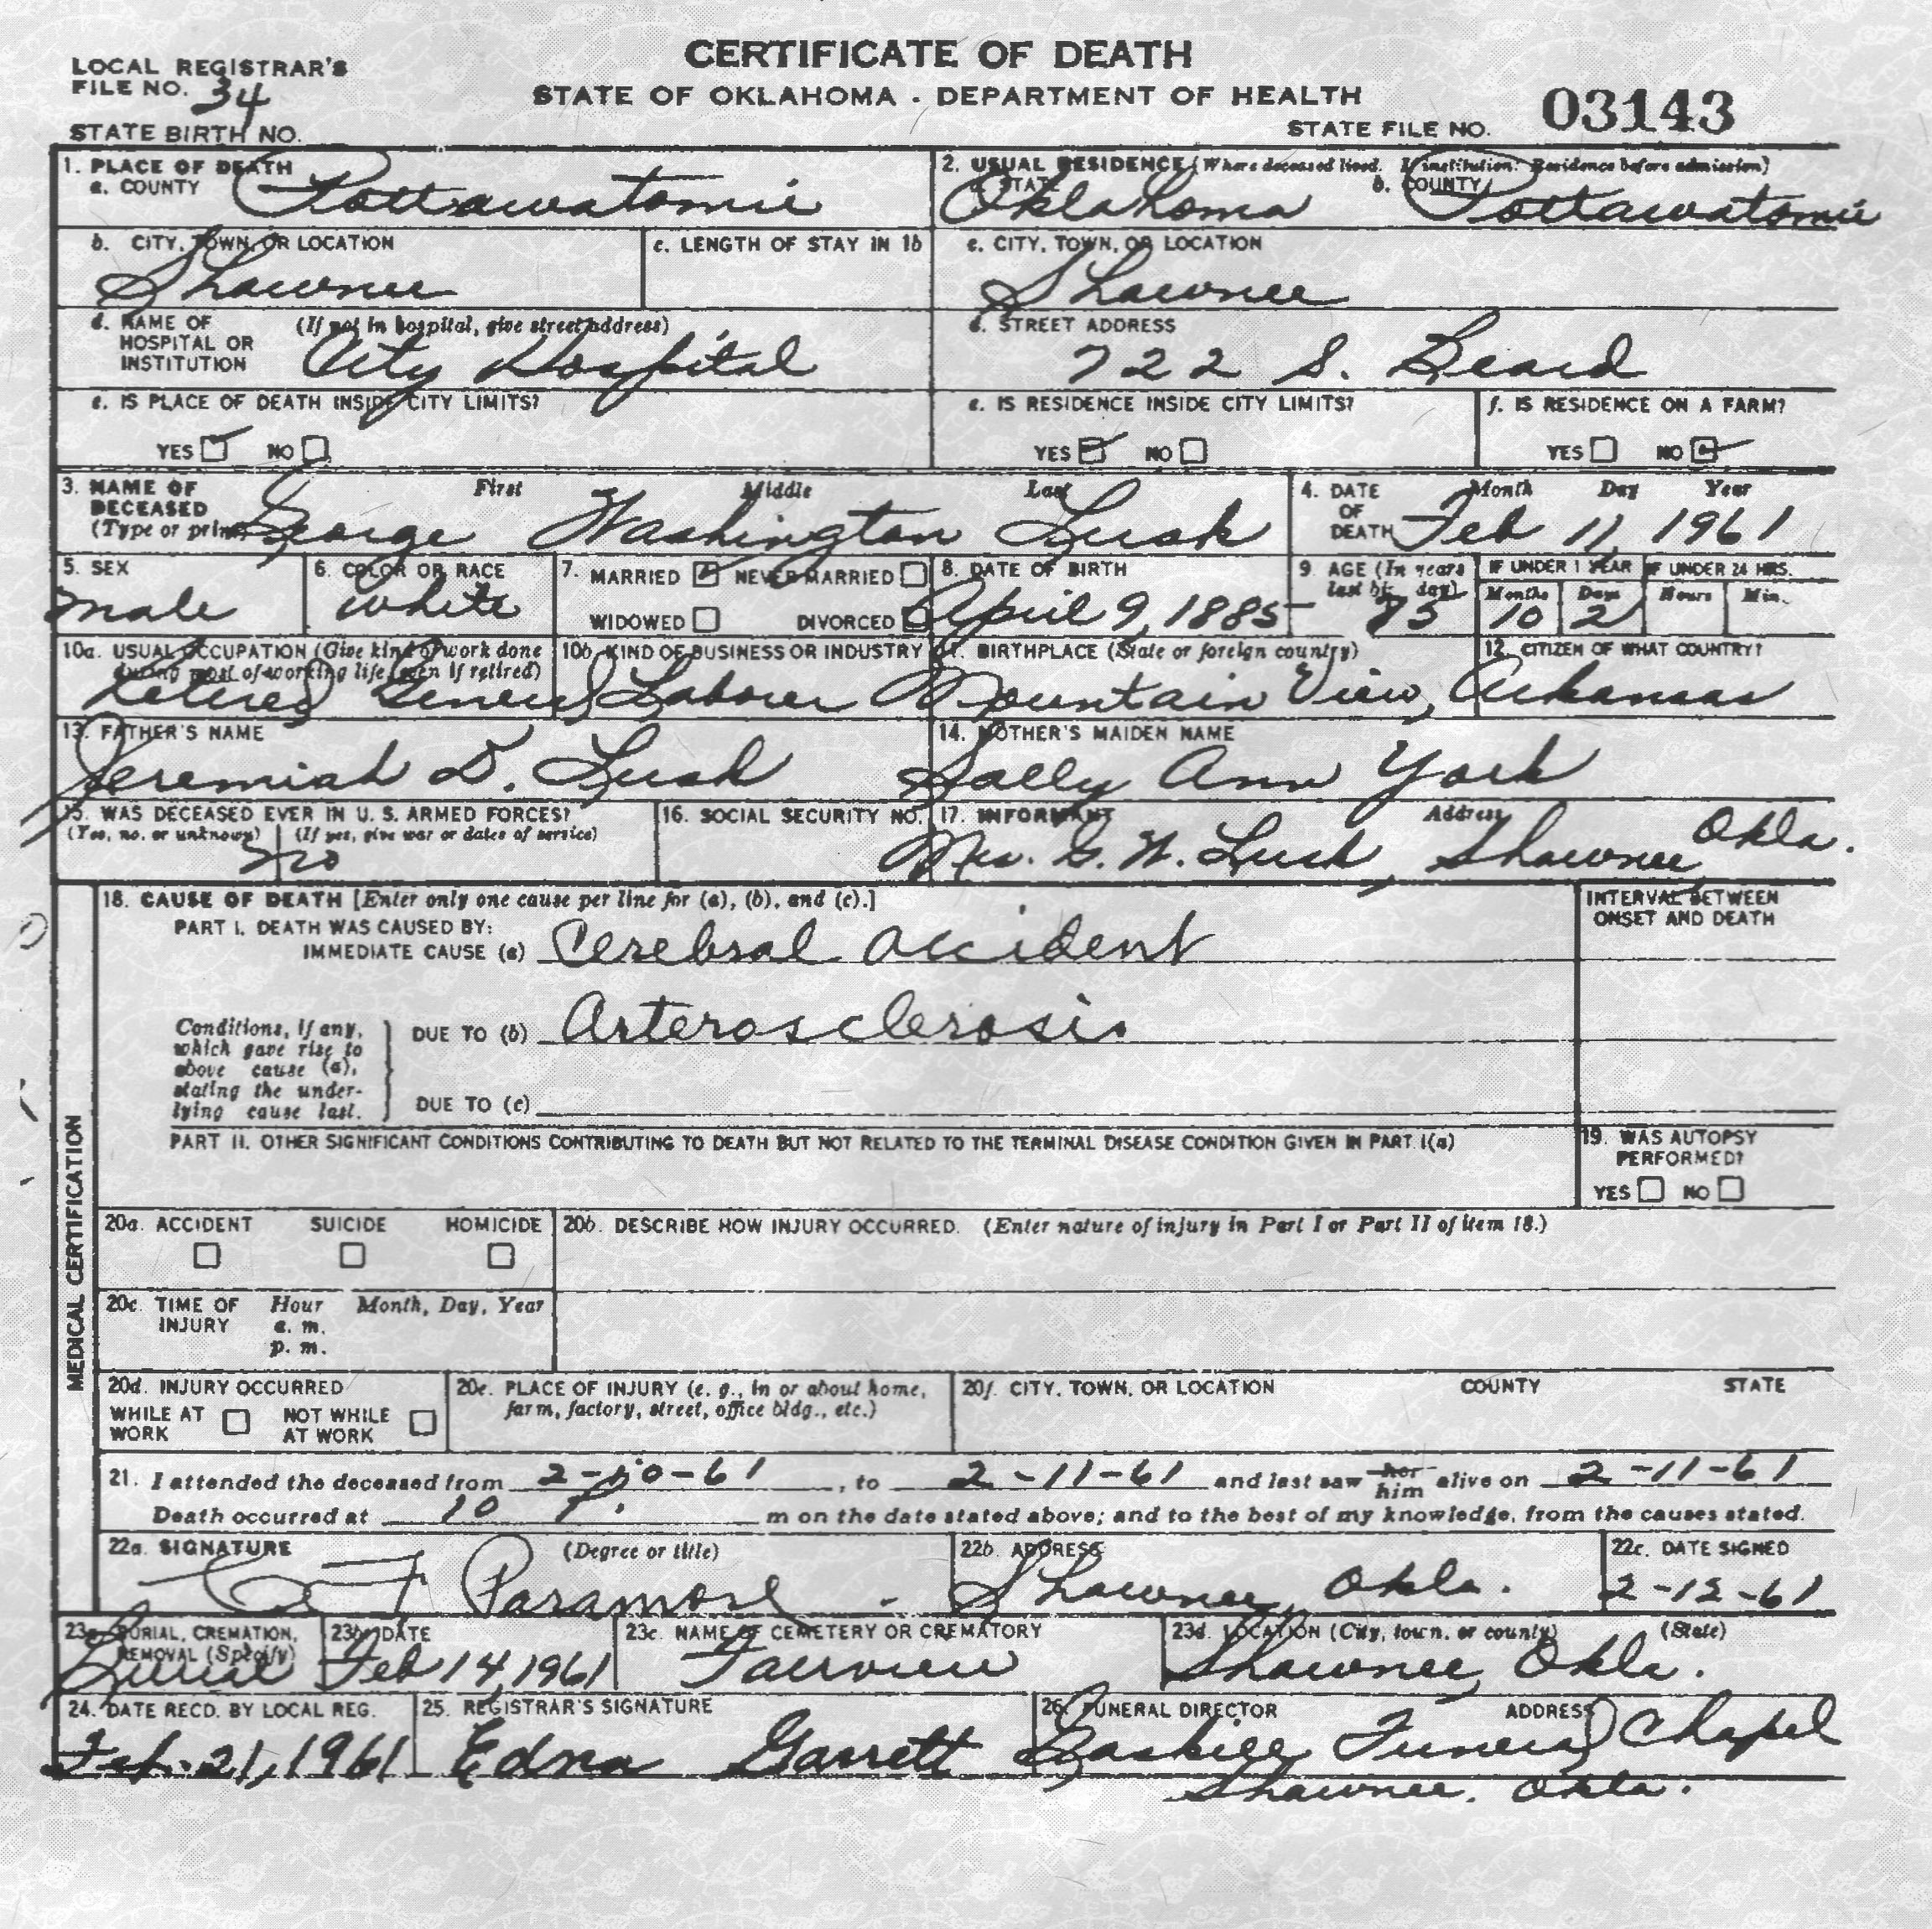 CERTIFICATE OF DEATH
STATE OF OKLAHOMA - DEPARTMENT OF HEALTH
LOCAL REGISTRAR'S
FILE NO. 34
STATE BIRTH NO.
STATE FILE NO. 03143
1. PLACE OF DEATH
a. COUNTY Pottawatomie
2. USUAL RESIDENCE (Where deceased lived. If institution: Residence before admission)
a. STATE Oklahoma b. COUNTY Pottawatomie
b. CITY, TOWN, OR LOCATION Shawnee
c. LENGTH OF STAY IN 1b
c. CITY, TOWN, OR LOCATION Shawnee
d. NAME OF HOSPITAL OR INSTITUTION (If not in hospital, give street address) City Hospital
d. STREET ADDRESS 722 S. Beard
e. IS PLACE OF DEATH INSIDE CITY LIMITS?
YES NO
e. IS RESIDENCE INSIDE CITY LIMITS?
YES NO
f. IS RESIDENCE ON A FARM?
YES NO
3. NAME OF DECEASED (Type or print) First Middle Last
George Washington Lusk
4. DATE OF DEATH Month Day Year
Feb 11 1961
5. SEX male
6. COLOR OR RACE White
7. MARRIED NEVER MARRIED
WIDOWED DIVORCED
8. DATE OF BIRTH April 9, 1885
9. AGE (In years last birthday) 75
IF UNDER 1 YEAR Months 10 Days 2
IF UNDER 24 HRS. Hours Min.
10a. USUAL OCCUPATION (Give kind of work done during most of working life, even if retired)
10b. KIND OF BUSINESS OR INDUSTRY
Retired General Laborer
11. BIRTHPLACE (State or foreign country)
12. CITIZEN OF WHAT COUNTRY?
Mountain View, Arkansas
13. FATHER'S NAME
Jeremiah D. Lusk
14. MOTHER'S MAIDEN NAME
Sally Ann York
15. WAS DECEASED EVER IN U. S. ARMED FORCES?
(Yes, no, or unknown) (If yes, give war or dates of service)
no
16. SOCIAL SECURITY NO.
17. INFORMANT Address
Mrs. G. W. Lusk, Shawnee, Okla.
MEDICAL CERTIFICATION
18. CAUSE OF DEATH [Enter only one cause per line for (a), (b), and (c).]
INTERVAL BETWEEN ONSET AND DEATH
PART I. DEATH WAS CAUSED BY:
IMMEDIATE CAUSE (a) Cerebral accident
Conditions, if any, which gave rise to above cause (a), stating the underlying cause last.
DUE TO (b) Arterosclerosis
DUE TO (c)
PART II. OTHER SIGNIFICANT CONDITIONS CONTRIBUTING TO DEATH BUT NOT RELATED TO THE TERMINAL DISEASE CONDITION GIVEN IN PART I(a)
19. WAS AUTOPSY PERFORMED?
YES NO
20a. ACCIDENT SUICIDE HOMICIDE
20b. DESCRIBE HOW INJURY OCCURRED. (Enter nature of injury in Part I or Part II of item 18.)
20c. TIME OF INJURY Hour Month, Day, Year
a. m.
p. m.
20d. INJURY OCCURRED
WHILE AT WORK NOT WHILE AT WORK
20e. PLACE OF INJURY (e. g., in or about home, farm, factory, street, office bldg., etc.)
20f. CITY, TOWN, OR LOCATION COUNTY STATE
21. I attended the deceased from 2-10-61, to 2-11-61 and last saw her him alive on 2-11-61
Death occurred at 10 P. m on the date stated above; and to the best of my knowledge, from the causes stated.
22a. SIGNATURE (Degree or title)
Paramore
22b. ADDRESS
Shawnee, Okla.
22c. DATE SIGNED
2-12-61
23a. BURIAL, CREMATION, REMOVAL (Specify)
Burial
23b. DATE
Feb 14, 1961
23c. NAME OF CEMETERY OR CREMATORY
Fairview
23d. LOCATION (City, town, or county) (State)
Shawnee, Okla.
24. DATE RECD. BY LOCAL REG.
Feb. 21, 1961
25. REGISTRAR'S SIGNATURE
Edna Garrett
26. FUNERAL DIRECTOR ADDRESS
Gaskill Funeral Chapel
Shawnee, Okla.